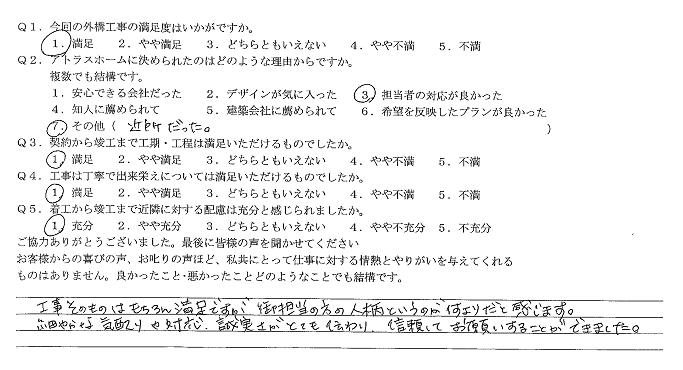 Q1．今回の外構工事の満足度はいかがですか。
1．満足　2．やや満足　3．どちらともいえない　4．やや不満　5．不満
Q2．アトラスホームに決められたのはどのような理由からですか。
複数でも結構です。
1．安心できる会社だった　2．デザインが気に入った　3．担当者の対応が良かった
4．知人に薦められて　5．建築会社に薦められて　6．希望を反映したプランが良かった
7．その他（　近所だった。　）
Q3．契約から竣工まで工期・工程は満足いただけるものでしたか。
1．満足　2．やや満足　3．どちらともいえない　4．やや不満　5．不満
Q4．工事は丁寧で出来栄えについては満足いただけるものでしたか。
1．満足　2．やや満足　3．どちらともいえない　4．やや不満　5．不満
Q5．着工から竣工まで近隣に対する配慮は充分と感じられましたか。
1．充分　2．やや充分　3．どちらともいえない　4．やや不充分　5．不充分
ご協力ありがとうございました。最後に皆様の声を聞かせてください
お客様からの喜びの声、お叱りの声ほど、私共にとって仕事に対する情熱とやりがいを与えてくれる
ものはありません。良かったこと・悪かったことどのようなことでも結構です。
工事そのものはもちろん満足ですが 御担当の方の人柄というのが何よりだと感じます。
細やかな気配りや対応、誠実さがとても伝わり、信頼してお願いすることができました。